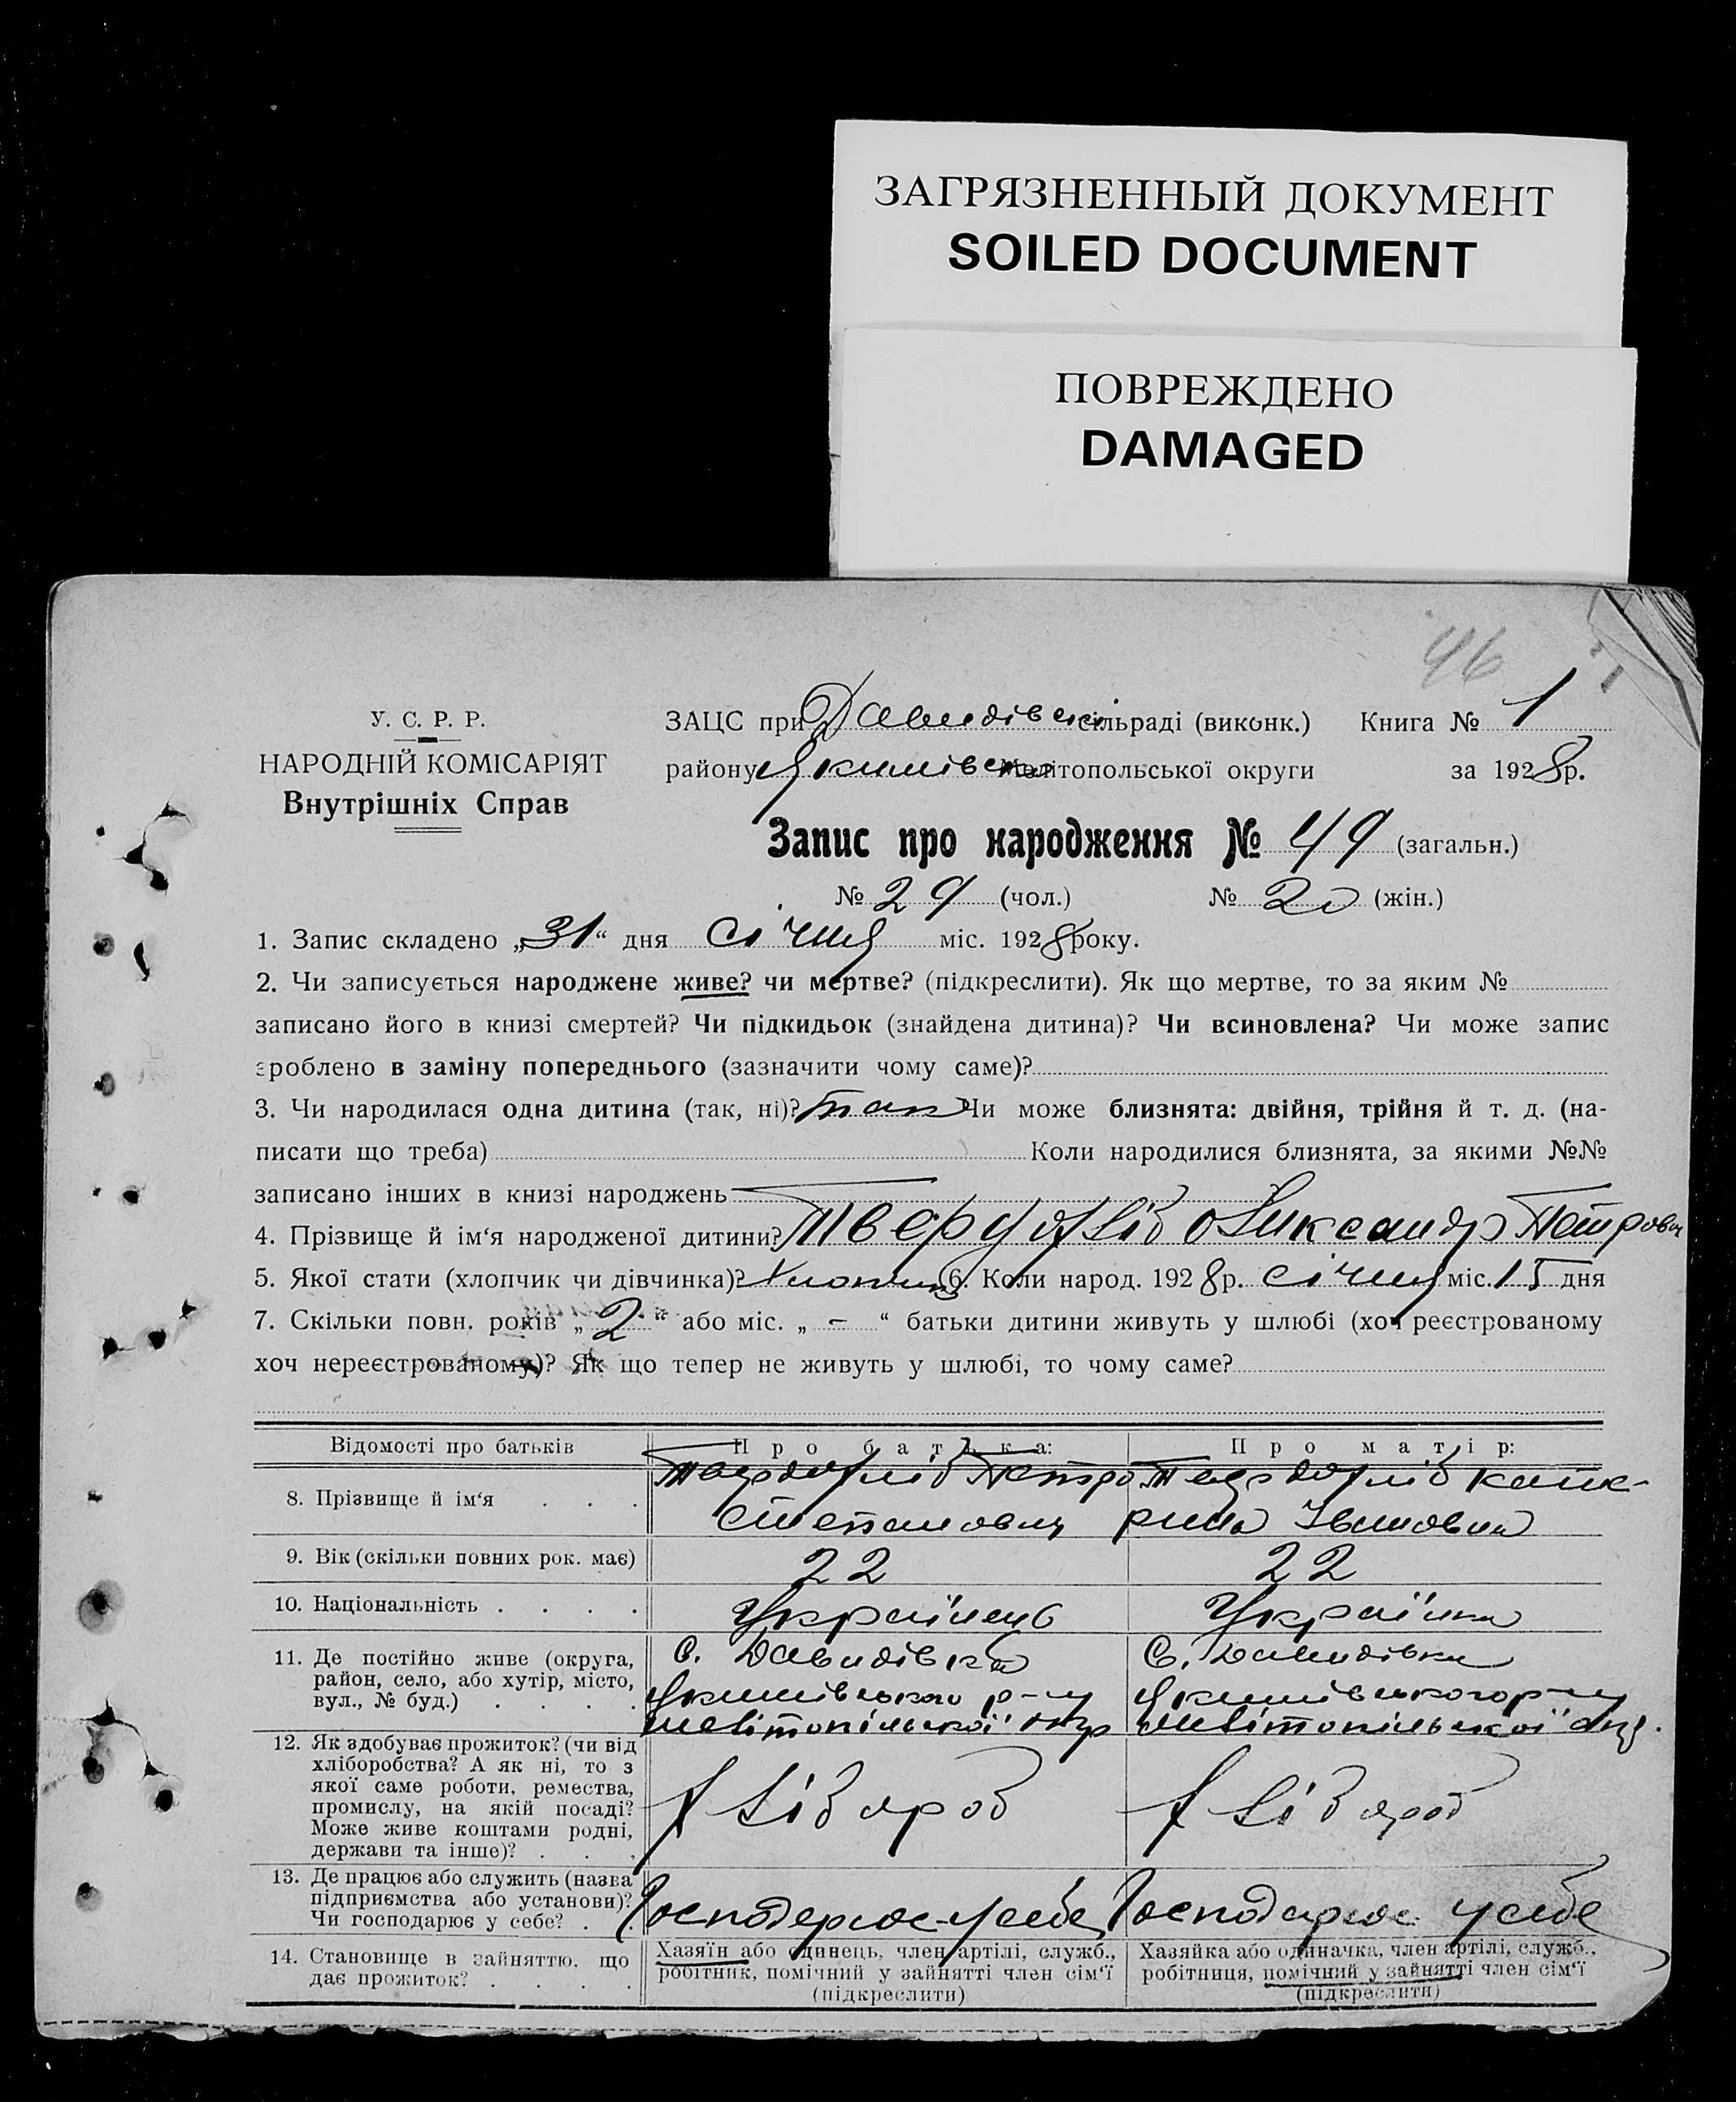 ЗАГРЯЗНЕННЫЙ ДОКУМЕНТ
SOILED DOCUMENT
ПОВРЕЖДЕНО
DAMAGED
46
У. С. Р. Р.
НАРОДНІЙ КОМІСАРІЯТ
Внутрішніх Справ
ЗАЦС при Давидівській сільраді (виконк.) Книга № 1
району Якимівськ Мелітопольської округи за 1928 р.
Запис про народження № 49 (загальн.)
№ 29 (чол.) № 20 (жін.)
1. Запис складено „31“ дня січня міс. 1928 року.
2. Чи записується народжене живе? чи мертве? (підкреслити). Як що мертве, то за яким №
записано його в книзі смертей? Чи підкидьок (знайдена дитина)? Чи всиновлена? Чи може запис
зроблено в заміну попереднього (зазначити чому саме)?
3. Чи народилася одна дитина (так, ні)? так Чи може близнята: двійня, трійня й т. д. (на-
писати що треба) Коли народилися близнята, за якими №№
записано інших в книзі народжень
4. Прізвище й ім‘я народженої дитини? Твердохліб Олександр Петрович
5. Якої стати (хлопчик чи дівчинка)? Хлопчик 6. Коли народ. 1928 р. січня міс. 15 дня
7. Скільки повн. років „2“ або міс. „ – “ батьки дитини живуть у шлюбі (хоч реєстрованому
хоч нереєстрованому)? Як що тепер не живуть у шлюбі, то чому саме?
Відомості про батьків Про батька: Про матір:
8. Прізвище й ім‘я Твердохліб Петро Твердохліб Кате-
Степанович рина Івановна
9. Вік (скільки повних рок. має) 22 22
10. Національність Українець Українка
11. Де постійно живе (округа, С. Давидівка С. Давидівка
район, село, або хутір, місто, Якимівського р-ну Якимівського р-ну
вул., № буд.) Мелітопільської окр Мелітопільської окр.
12. Як здобуває прожиток? (чи від
хліборобства? А як ні, то з
якої саме роботи, ремества,
промислу, на якій посаді? хлібороб хлібороб
Може живе коштами родні,
держави та інше)?
13. Де працює або служить (назва
підприємства або установи)? Господарює у себе Господарює у себе
Чи господарює у себе?
14. Становище в зайняттю, що Хазяїн або одинець, член артілі, служб., Хазяйка або одиначка, член артілі, служб.,
дає прожиток? робітник, помічний у зайнятті член сім‘ї робітниця, помічний у зайнятті член сім‘ї
(підкреслити) (підкреслити)